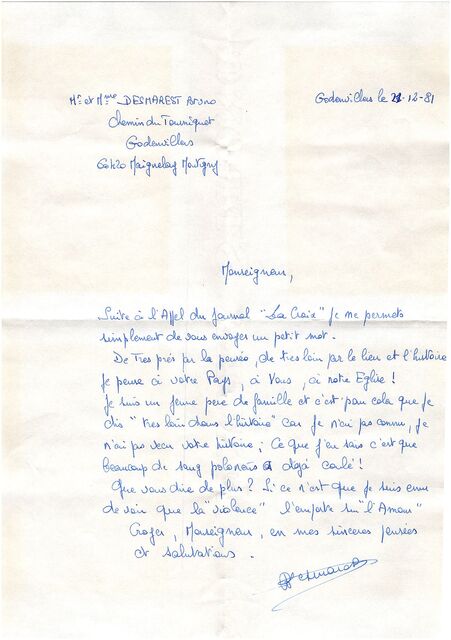 Mr et Mme DESMAREST Bruno
Godenvillers le 21-12-81
Chemin du Tourniquet
Godenvillers
60420 Maignelay Montigny
Monseigneur,
Suite à l'Appel du Journal "La Croix" je me permets
simplement de vous envoyer un petit mot.
De Très près par la pensée, de très loin par le lieu et l'histoire
je pense à votre Pays, à Vous, à notre Eglise !
Je suis un jeune père de famille et c'est pour cela que je
dis "très loin dans l'histoire" car je n'ai pas connu, je
n'ai pas vécu votre histoire ; Ce que j'en sais c'est que
beaucoup de sang polonais a déjà coulé !
Que vous dire de plus ? Si ce n'est que je suis ému
de voir que la "violence" l'emporte sur "l'Amour"
Croyez, Monseigneur, en mes sincères pensées
et salutations.